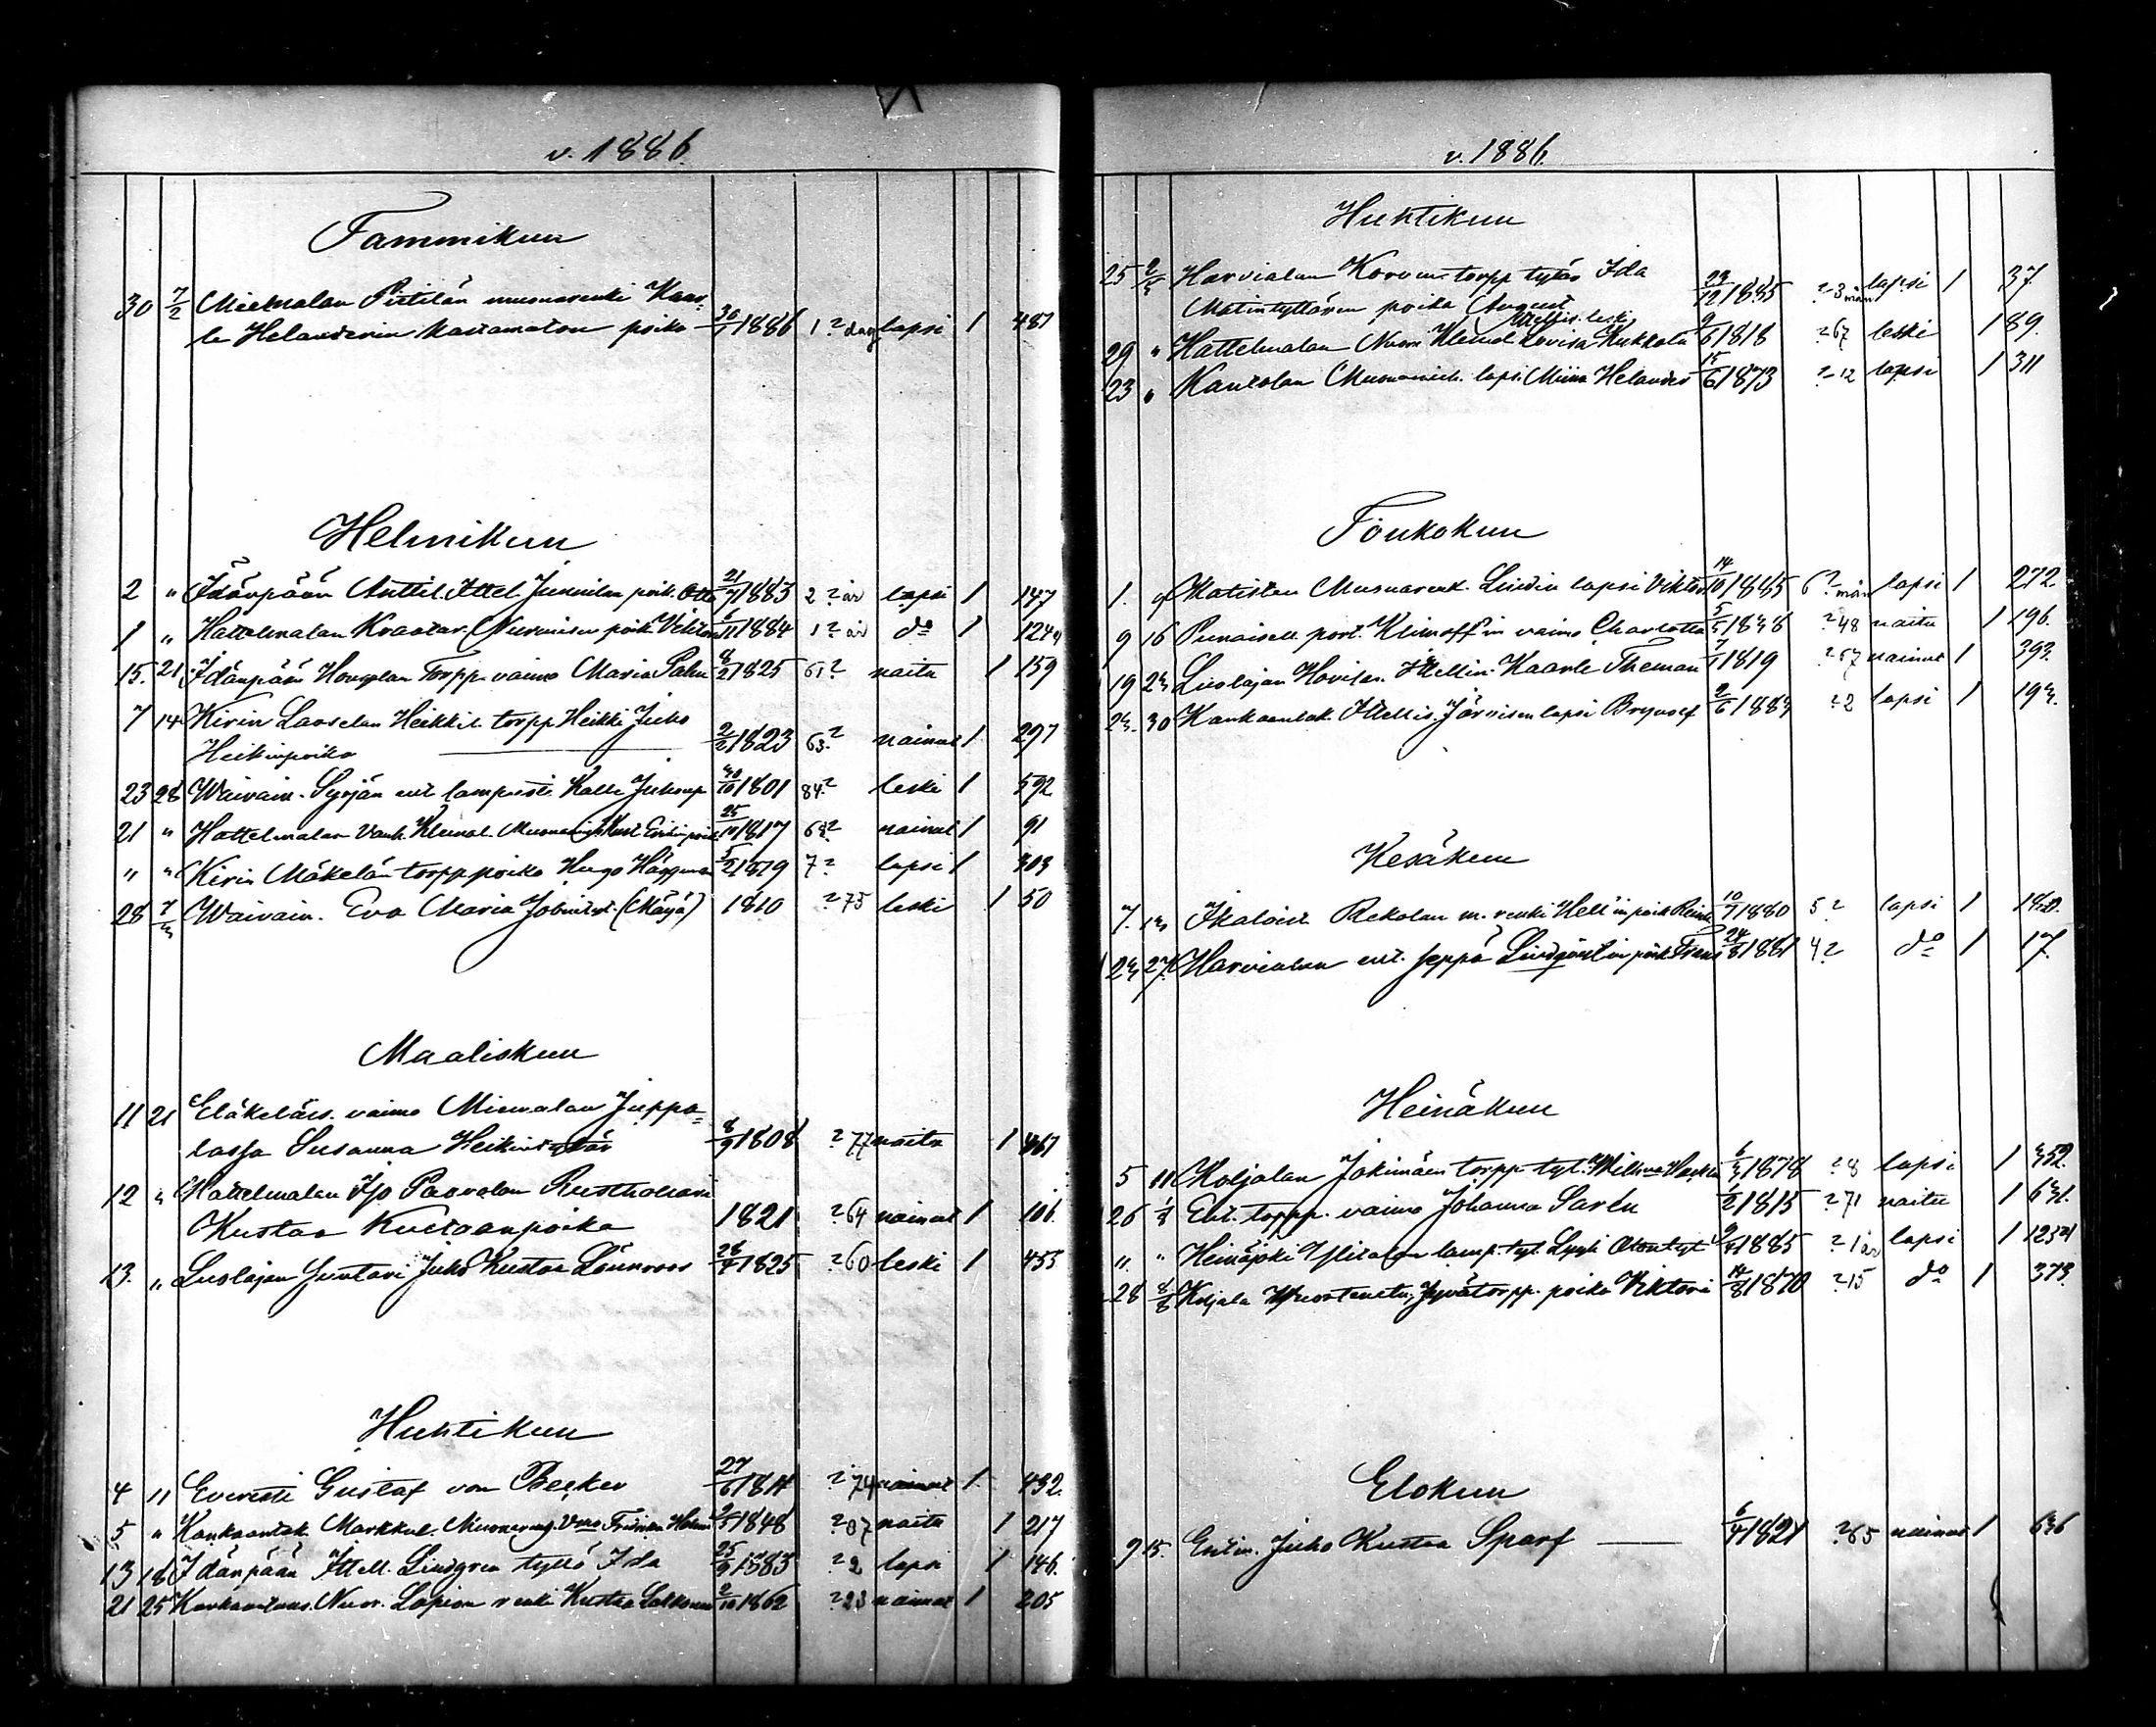 v. 1886.
Tammikuu
30 7/2 Miemalan Pietilän muonarenki Kaar-
le Helanderin kastamaton poika 30/1 1886 1 ? dag lapsi 1 487
Helmikuu
2 " Idänpään Anttil. Ittel. Junnilan poik. Otto 21/7 1883 2 ? år lapsi 1 147
1 " Hattelmalan Kraatar. Nurmisen poik. Viktor 6/11 1884 1 ? år do 1 124
15. 21 Idänpään Torpp. vaimo Maria 8/2 1825 61 ? naitu 1 159
7 14 Kirin Laoselan Heikkil. torpp. Heikki Juho
Heikinpoika 2/2 1823 63 ? nainut 1 297
23 28 Waivain. Syrjän ent. lampuoti Kalle Juhonp. 30/10 1801 84 ? leski 1 592
21 " Hattelmalan Vanh. Klemol. Muonamies Kust. Erikinpoik. 25/10 1817 68 ? nainut 1 91
" " Kirin Mäkelän torpp. poika Hugo Häggman 5/2 1879 7 ? lapsi 1 303
28 7/3 Waivain. Eva Maria Johintyt. (Mäyä) 1810 ? 75 leski 1 50
Maaliskuu
11 21 Eläkeläis. vaimo Miemalan Juppa-
lassa Susanna Heikintytär 8/9 1808 ? 77 naitu 1 461
12 " Hattelmalan Iso Paavolan Rusthollari
Kustaa Kustaanpoika 1821 ? 64 nainut 1 106
13. " Luolajan Juntari Juho Kustaa Lönnroos 28/4 1825 ? 60 leski 1 455
Huhtikuu
4 11 Eversti Gustaf von Becker 27/6 1811 ? 74 nainut 1 432.
5 " Kankaantak. Markkul. Muonareng. Vmo 2/5 1848 ? 37 naitu 1 217
13 18 Idänpään Ittell. Lindgren tyttö Ida 25/9 1883 ? 2 lapsi 1 146.
21 25 Kankaantaus. Nuor. Lapion renki Kustaa Salkonen 2/10 1862 ? 23 nainut 1 205
v. 1886.
Huhtikuu
25 2/5 Harvialan Korven torpp. tytär Ida
Matintyttären poika August 23/12 1885 ? 3 mån lapsi 1 37
Ittellis. leski
29 " Hattelmalan Nuor. Klemol. Lovisa Kukkola 9/6 1818 ? 67 leski 1 89.
23 " Kantolan Muonarenk. lapsi Miina Helander 15/6 1873 ? 12 lapsi 1 311
Toukokuu
1. 9 Katisten Muonarenk. Lindin lapsi Viktor 14/10 1885 6 ? mån lapsi 1 272
9 16 Punaisell. port. Klimoff'in vaimo Charlotta 5/5 1838 ? 48 naitu 1 196.
19 23 Luolajan Hovilan. Ittellin. Kaarle Theman 7/1 1819 ? 67 nainut 1 393.
23. 30 Kankaantak. Ittellis. Järvisen lapsi Brynolf 2/6 1883 ? 2 lapsi 1 193.
Kesäkuu
7. 13 Ikalois. Rekolan m. renki Hell'in poik. 10/7 1880 5 ? lapsi 1 182.
23 27 Harvialan ent. seppä Lindqvist'in poik. Frans 24/8 1881 4 ? do 1 17.
Heinäkuu
5 11 Koljalan Jokimäen torpp. tyt. 6/3 1878 ? 8 lapsi 1 352.
26 1/8 Ent. torpp. vaimo Johanna Saren 1/2 1815 ? 71 naitu 1 631.
" " Heinäjoki Ylitalon lamp. tyt. Lyyli Otontyt. 9/4 1885 ? 1 år lapsi 1
28 8/8 Koljala Jyvätorpp. poika Viktori 14/8 1870 ? 15 do 1 373.
Elokuu
9 15. Entin. Juho Kustaa Sparf 6/4 1821 ? 65 nainut 1 636